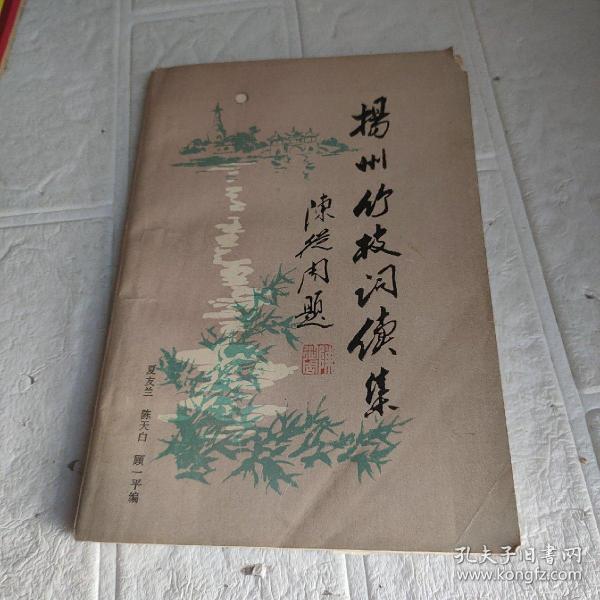 揚州竹枝词续集
陳從周題
夏友兰 陈天白 顾一平编
孔夫子旧书网
www.kongfz.com